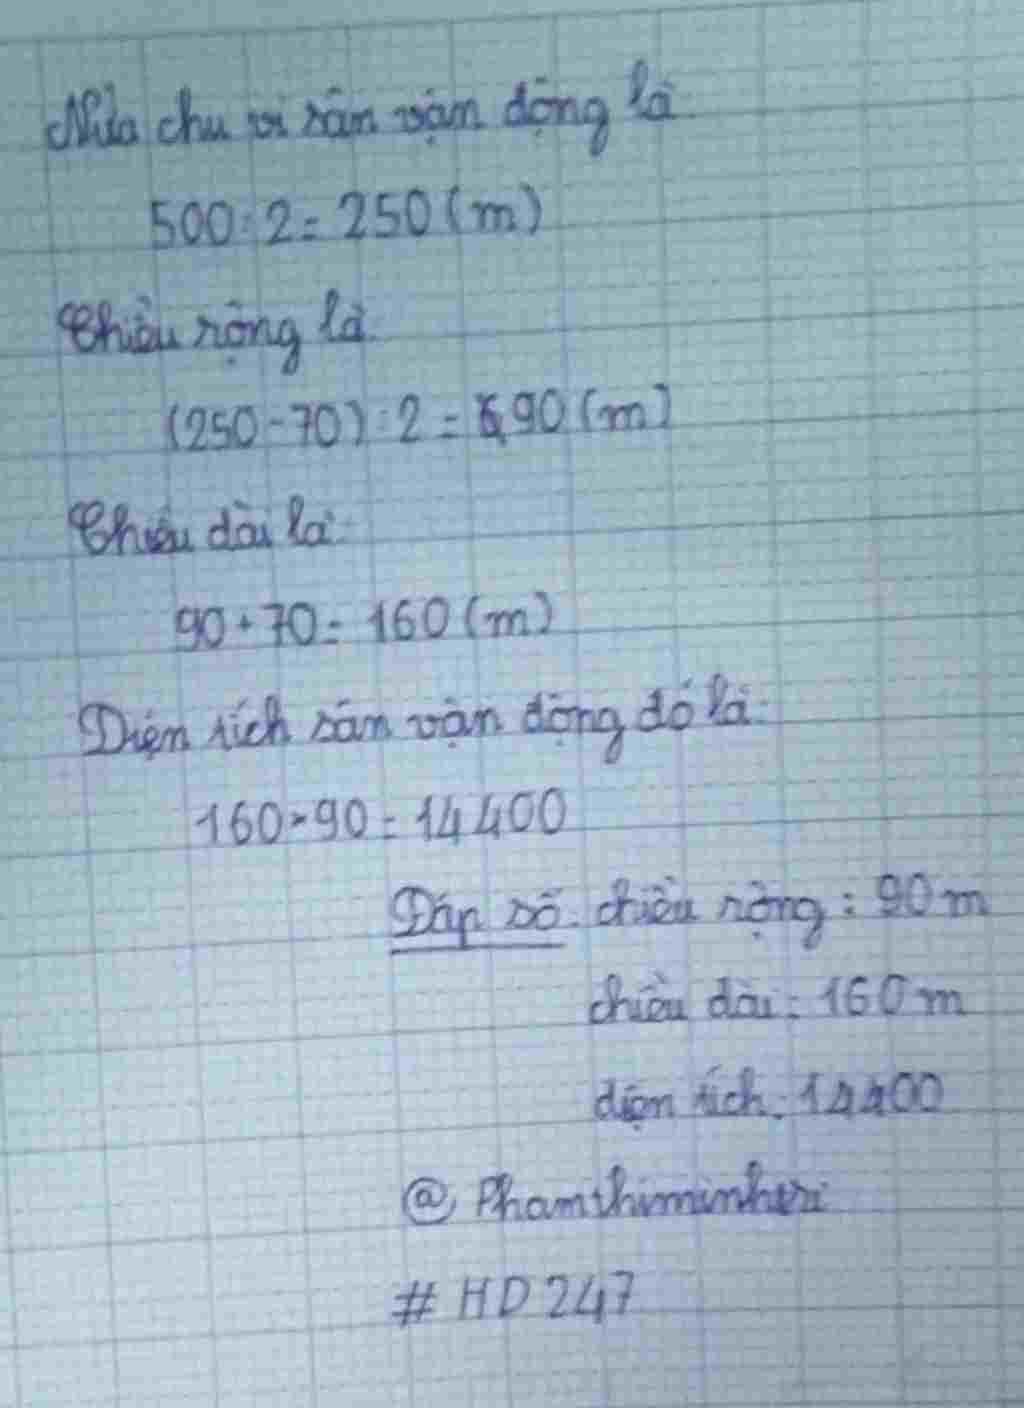 Nửa chu vi sân vận động là:
500 : 2 = 250 (m)
Chiều rộng là:
(250 - 70) : 2 = 90 (m)
Chiều dài là:
90 + 70 = 160 (m)
Diện tích sân vận động đó là:
160 × 90 = 14400
Đáp số: chiều rộng : 90 m
chiều dài : 160 m
diện tích : 14400
@
# HD247